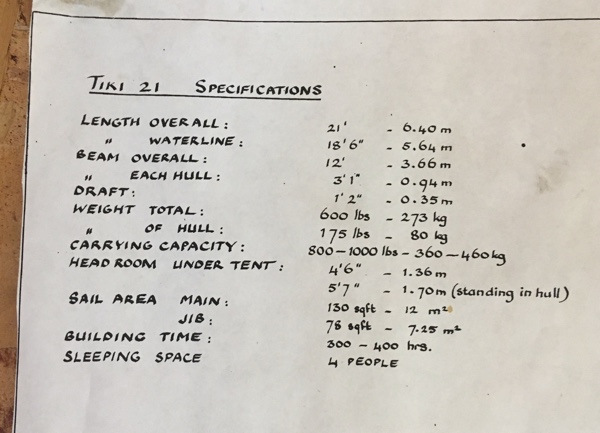 TIKI 21 SPECIFICATIONS
LENGTH OVERALL: 21' - 6.40 m
" WATERLINE: 18'6" - 5.64 m
BEAM OVERALL: 12' - 3.66 m
" EACH HULL: 3'1" - 0.94 m
DRAFT: 1'2" - 0.35 m
WEIGHT TOTAL: 600 lbs - 273 kg
" OF HULL: 175 lbs - 80 kg
CARRYING CAPACITY: 800-1000 lbs - 360-460kg
HEAD ROOM UNDER TENT: 4'6" - 1.36 m
5'7" - 1.70m (standing in hull)
SAIL AREA MAIN: 130 sqft - 12 m²
JIB: 78 sqft - 7.25 m²
BUILDING TIME: 300 - 400 hrs.
SLEEPING SPACE 4 PEOPLE